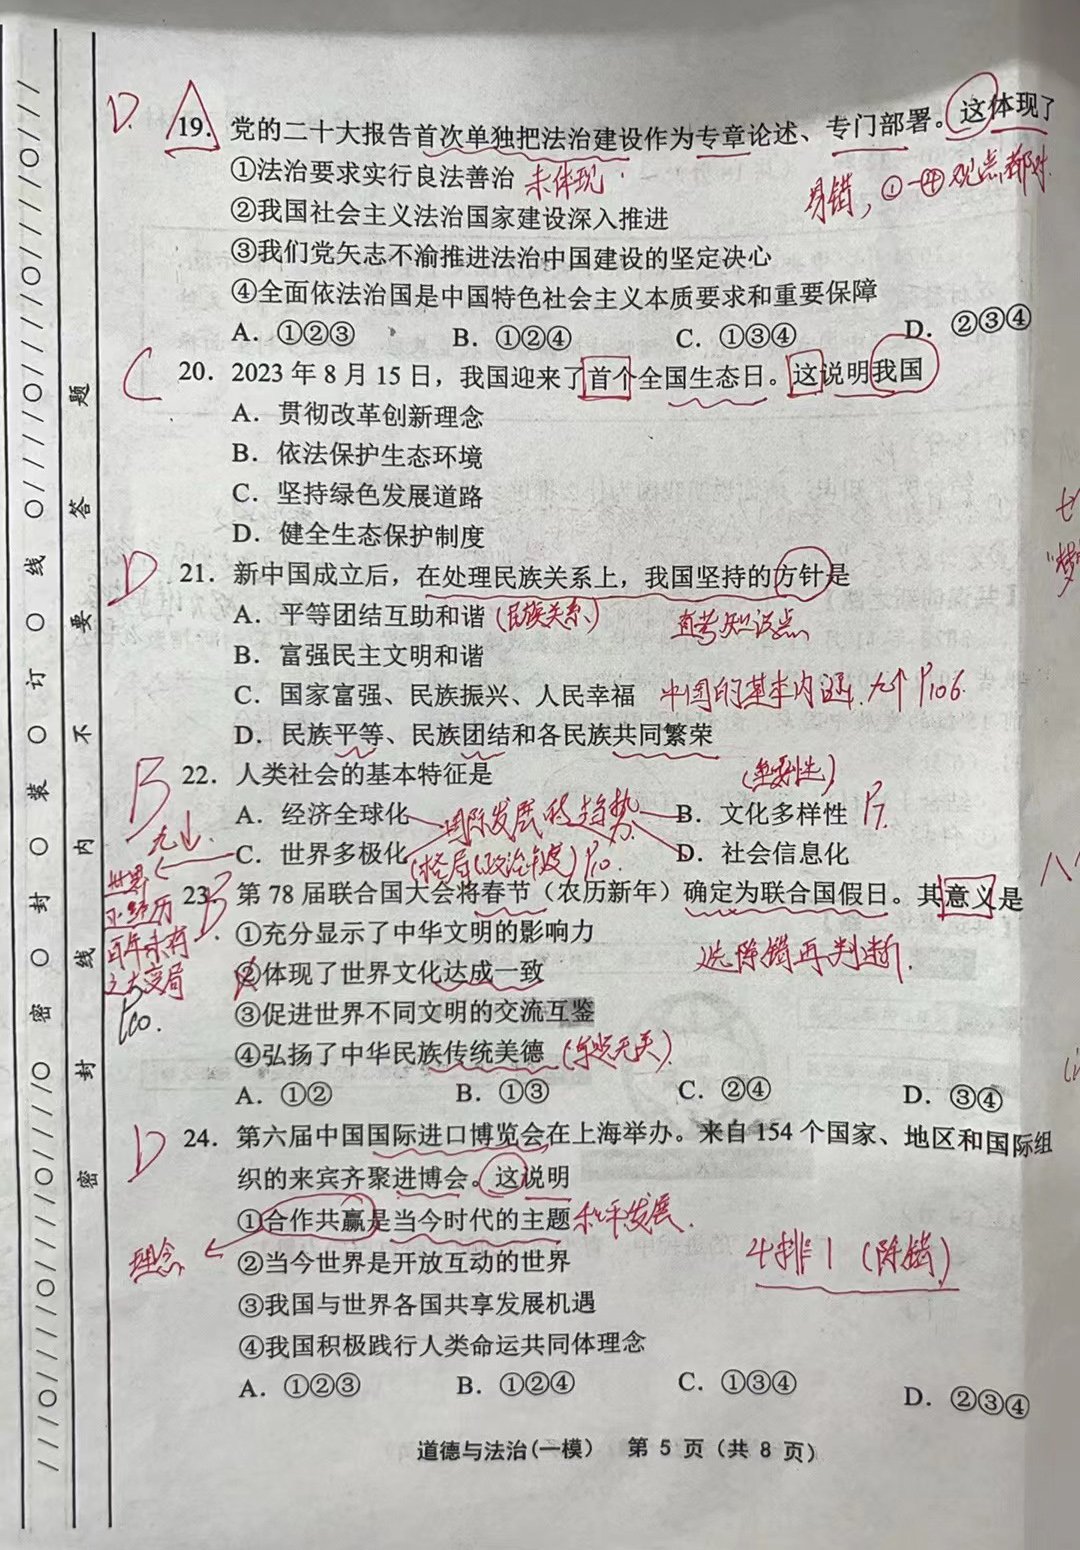 D. 19. 党的二十大报告首次单独把法治建设作为专章论述、专门部署。这体现了
①法治要求实行良法善治 未体现
易错，①—④观点都对.
②我国社会主义法治国家建设深入推进
③我们党矢志不渝推进法治中国建设的坚定决心
④全面依法治国是中国特色社会主义本质要求和重要保障
A. ①②③ B. ①②④ C. ①③④ D. ②③④
C 20. 2023 年 8 月 15 日，我国迎来了首个全国生态日。这说明我国
A. 贯彻改革创新理念
B. 依法保护生态环境
C. 坚持绿色发展道路
D. 健全生态保护制度
D 21. 新中国成立后，在处理民族关系上，我国坚持的方针是
A. 平等团结互助和谐 (民族关系) 直考知识点
B. 富强民主文明和谐
C. 国家富强、民族振兴、人民幸福 中国的基本内涵. 九个 P106.
D. 民族平等、民族团结和各民族共同繁荣
B 22. 人类社会的基本特征是 (重要性)
A. 经济全球化 国际发展的趋势 B. 文化多样性 P7.
九上.
C. 世界多极化 (格局(政治角度) P10. D. 社会信息化
B 23. 第 78 届联合国大会将春节（农历新年）确定为联合国假日。其意义是
世界
正经历
百年未有
之大变局
①充分显示了中华文明的影响力
选除错再判断.
②体现了世界文化达成一致
③促进世界不同文明的交流互鉴
④弘扬了中华民族传统美德 (与此无关).
A. ①② B. ①③ C. ②④ D. ③④
D 24. 第六届中国国际进口博览会在上海举办。来自 154 个国家、地区和国际组
织的来宾齐聚进博会。这说明
①合作共赢是当今时代的主题 和平发展.
理念
②当今世界是开放互动的世界
4排1 (除错)
③我国与世界各国共享发展机遇
④我国积极践行人类命运共同体理念
A. ①②③ B. ①②④ C. ①③④ D. ②③④
道德与法治(一模) 第 5 页（共 8 页）
题
答
要
不
内
线
封
密
线
订
装
封
密